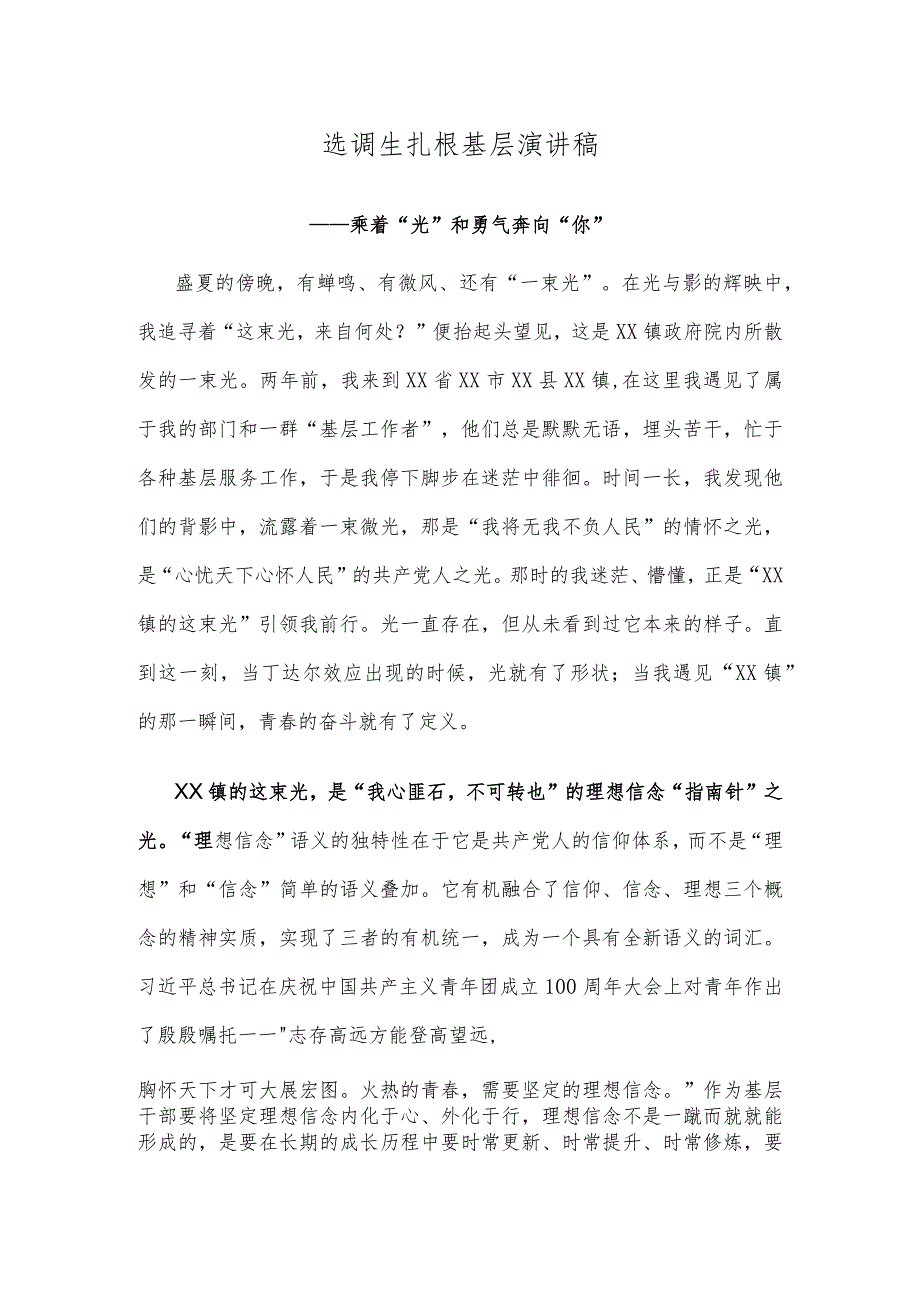 选调生扎根基层演讲稿
——乘着“光”和勇气奔向“你”
盛夏的傍晚，有蝉鸣、有微风、还有“一束光”。在光与影的辉映中，
我追寻着“这束光，来自何处？”便抬起头望见，这是XX镇政府院内所散
发的一束光。两年前，我来到XX省XX市XX县XX镇,在这里我遇见了属
于我的部门和一群“基层工作者”，他们总是默默无语，埋头苦干，忙于
各种基层服务工作，于是我停下脚步在迷茫中徘徊。时间一长，我发现他
们的背影中，流露着一束微光，那是“我将无我不负人民”的情怀之光，
是“心忧天下心怀人民”的共产党人之光。那时的我迷茫、懵懂，正是“XX
镇的这束光”引领我前行。光一直存在，但从未看到过它本来的样子。直
到这一刻，当丁达尔效应出现的时候，光就有了形状；当我遇见“XX镇”
的那一瞬间，青春的奋斗就有了定义。
XX镇的这束光，是“我心匪石，不可转也”的理想信念“指南针”之
光。“理想信念”语义的独特性在于它是共产党人的信仰体系，而不是“理
想”和“信念”简单的语义叠加。它有机融合了信仰、信念、理想三个概
念的精神实质，实现了三者的有机统一，成为一个具有全新语义的词汇。
习近平总书记在庆祝中国共产主义青年团成立100周年大会上对青年作出
了殷殷嘱托一一"志存高远方能登高望远,
胸怀天下才可大展宏图。火热的青春，需要坚定的理想信念。”作为基层
干部要将坚定理想信念内化于心、外化于行，理想信念不是一蹴而就就能
形成的，是要在长期的成长历程中要时常更新、时常提升、时常修炼，要